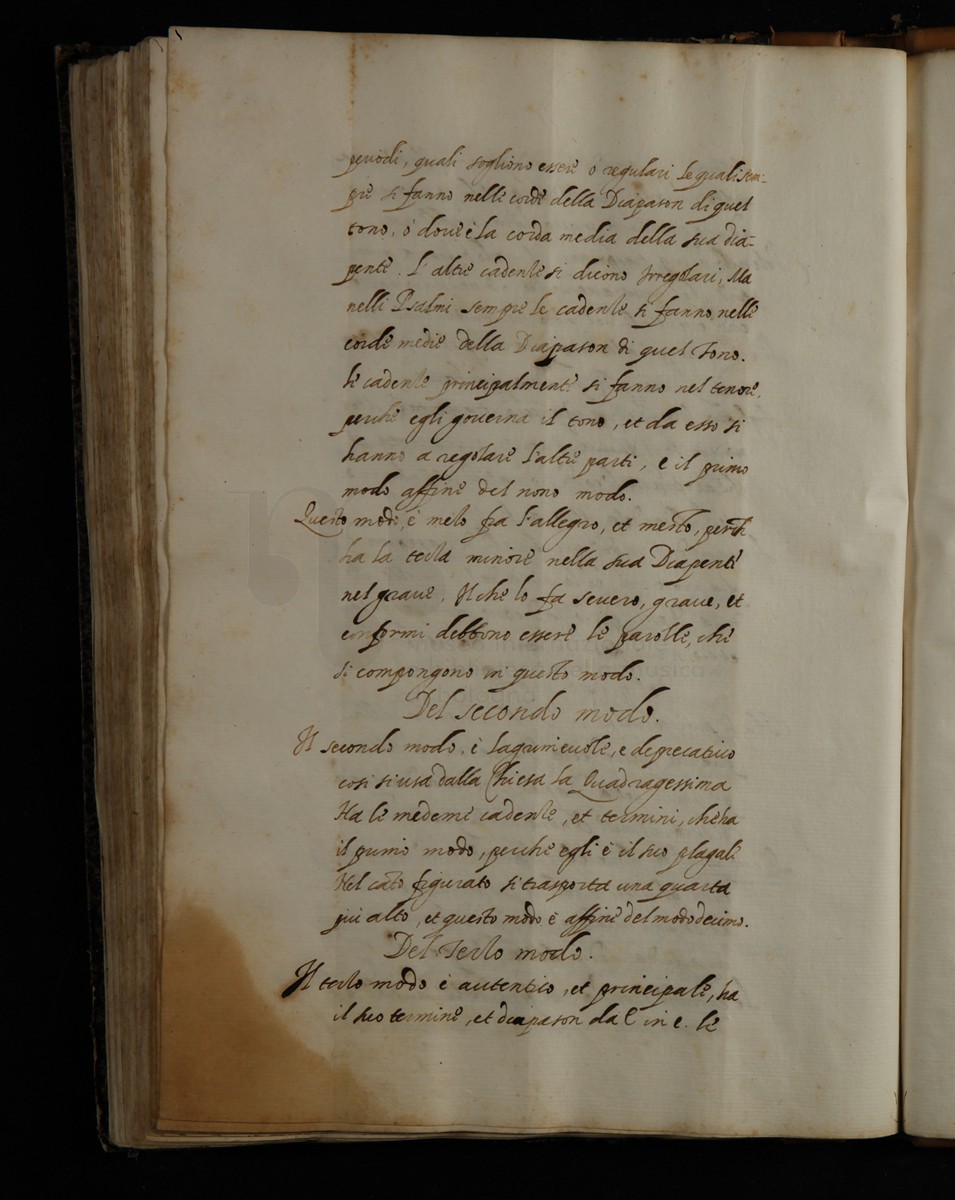 periodi, quali sogliono essere ò regulari le quali sem-
pre si fanno nelle corde della Diapason di quel
tono, ò dove è la corda media della sua dia-
pente. L'altre cadenze si dicono Irregolari, Ma
nelli Psalmi sempre le cadenze si fanno nelle
corde medie della Diapason di quel tono.
Le cadenze principalmente si fanno nel tenore,
perche egli governa il tono, et da esso si
hanno a regolare l'altre parti, e il primo
modo affine del nono modo.
Questo modo, è mezo fra l'allegro, et mesto, perch
ha la terza minore nella sua Diapente
nel grave. Il che lo fa severo, grave, et
conformi debbono essere le parolle, che
si compongono in questo modo.
Del secondo modo.
Il secondo modo, è lagrimevole, e deprecativo
cosi si usa dalla Chiesa la Quadragessima
Ha le medeme cadenze, et termini, che ha
il primo modo, perche egli è il suo plagale
Nel cato figurato si trasporta una quarta
piu alto, et questo modo è affine del modo decimo.
Del Terzo modo.
Il terzo modo è autentico, et principale, ha
il suo termine, et diapason da E in e. le